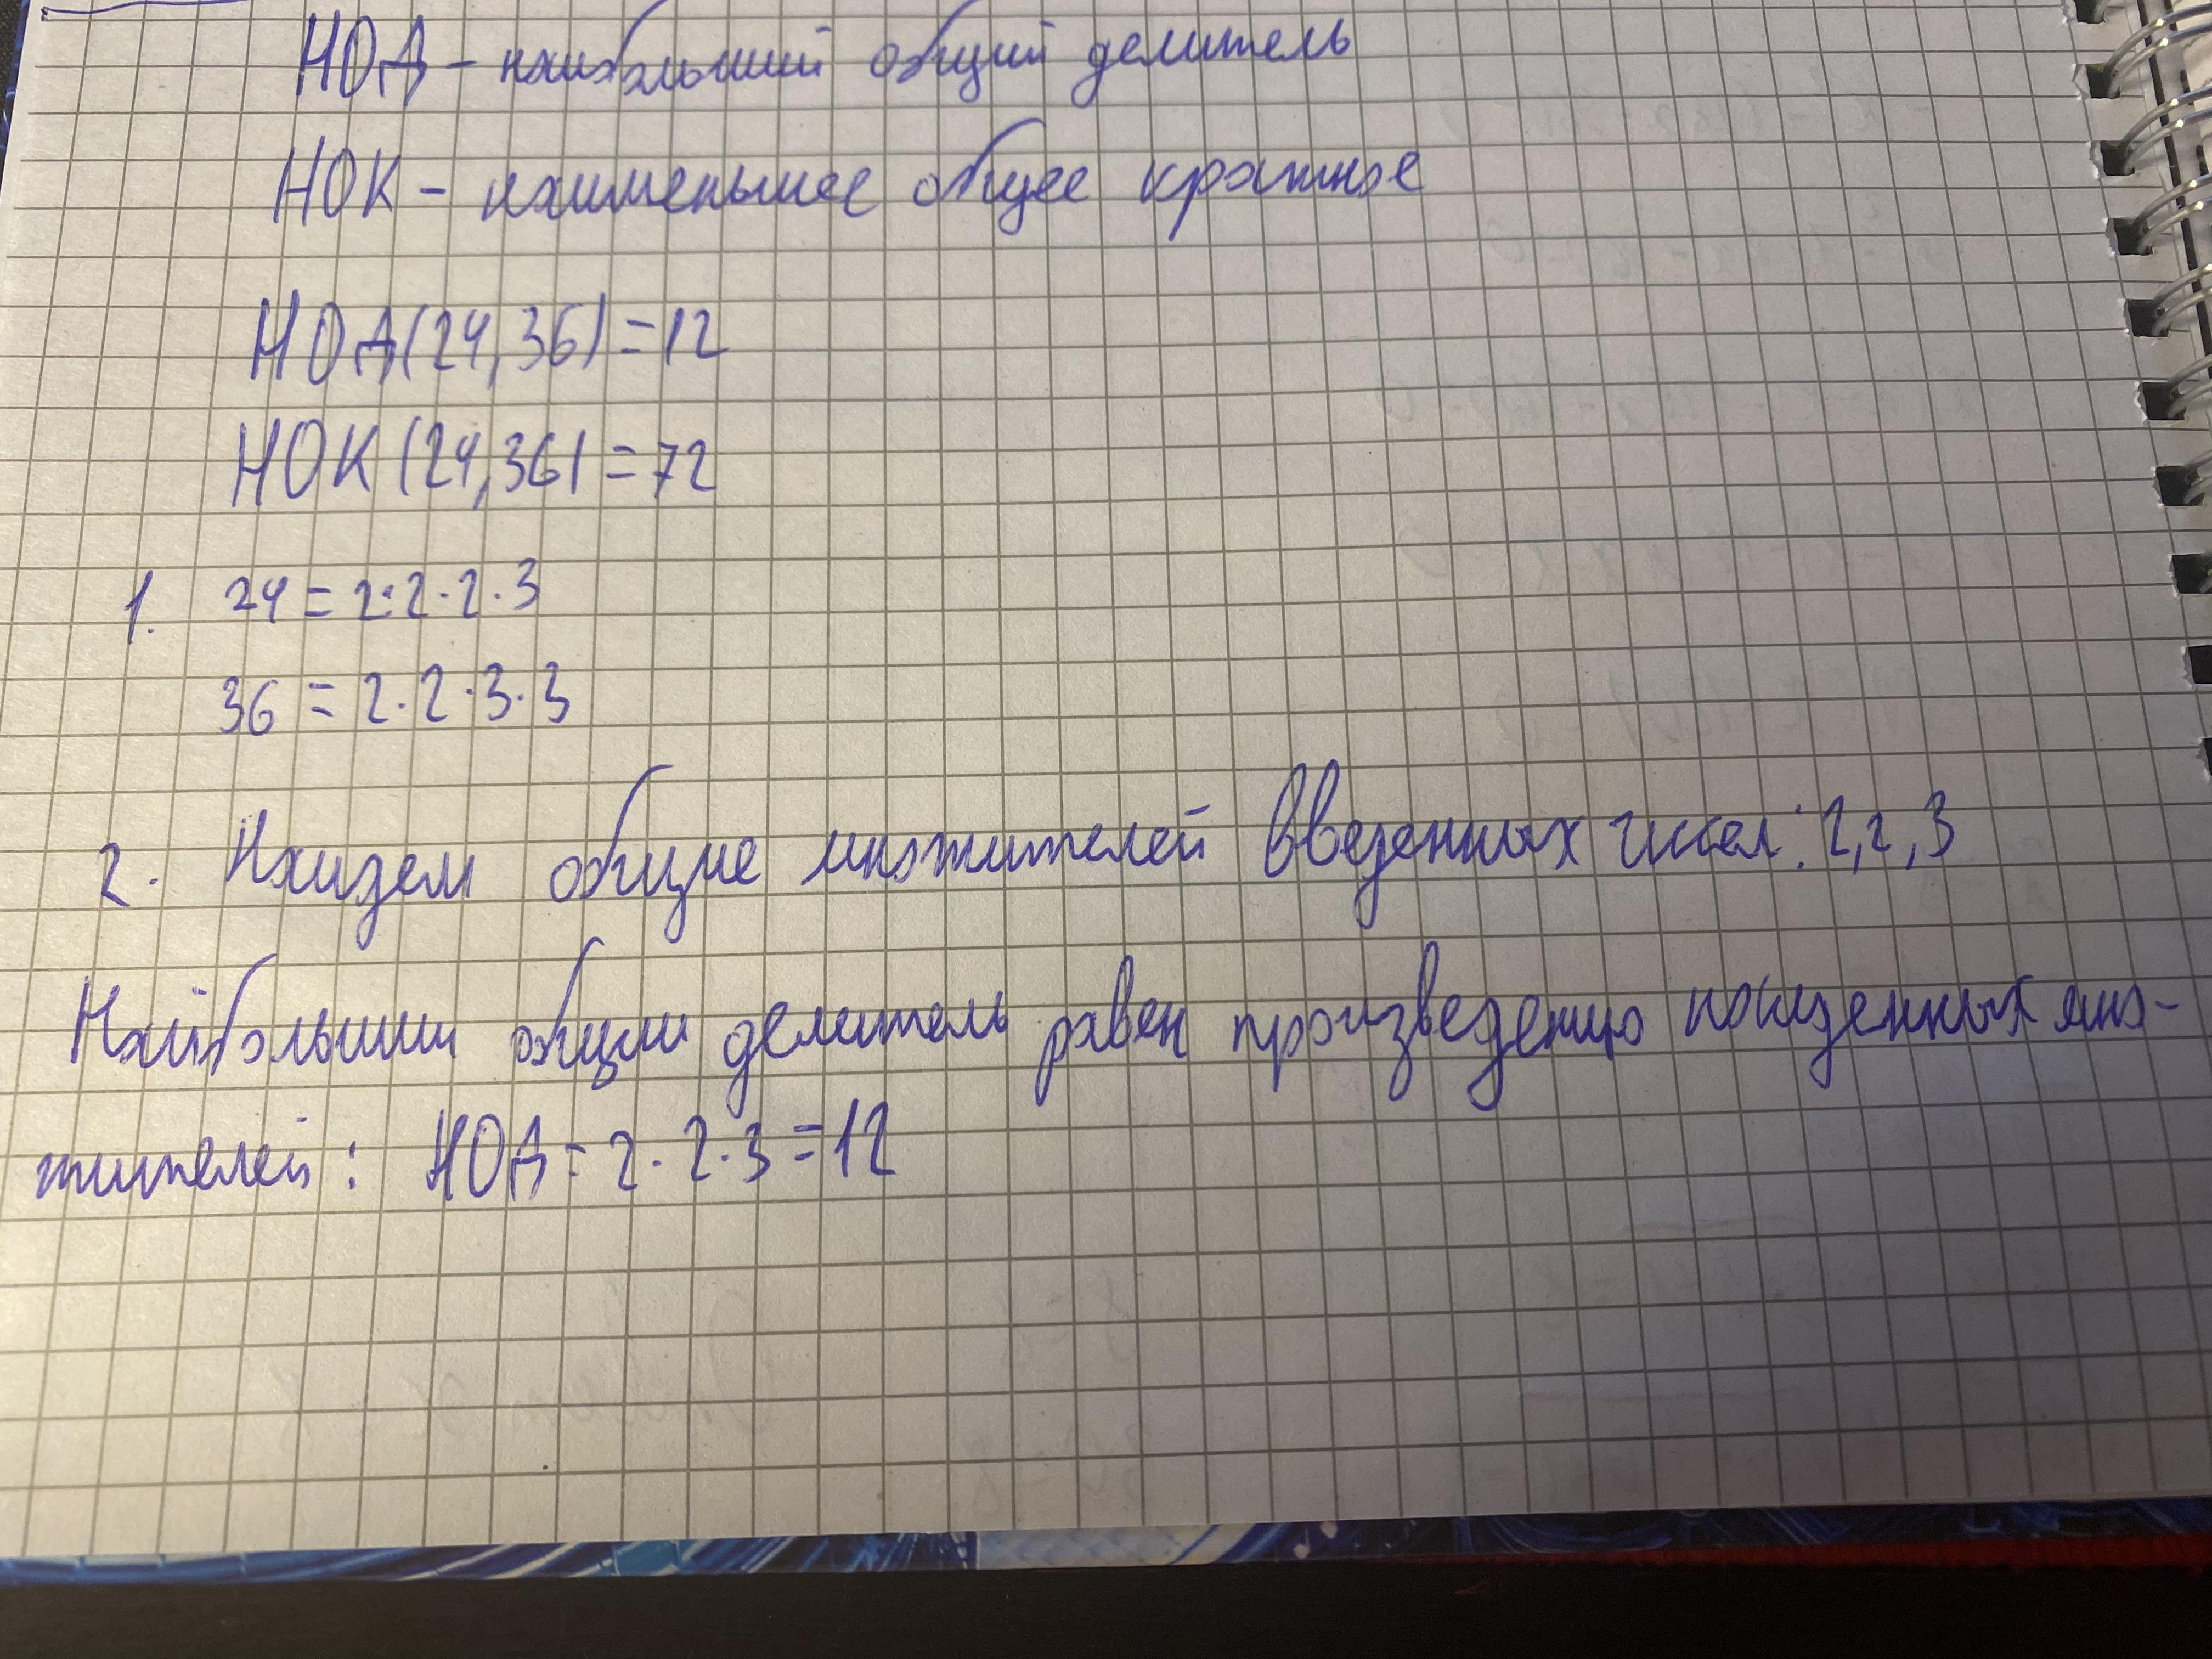 НОД - наибольший общий делитель
НОК - наименьшее общее кратное
НОД(24,36)=12
НОК(24,36)=72
1. 24=2·2·2·3
36=2·2·3·3
2. Найдем общие множителей введенных чисел: 2,2,3
Найбольшии общии делитель равен произведению найденных мно-
жителей: НОД=2·2·3=12